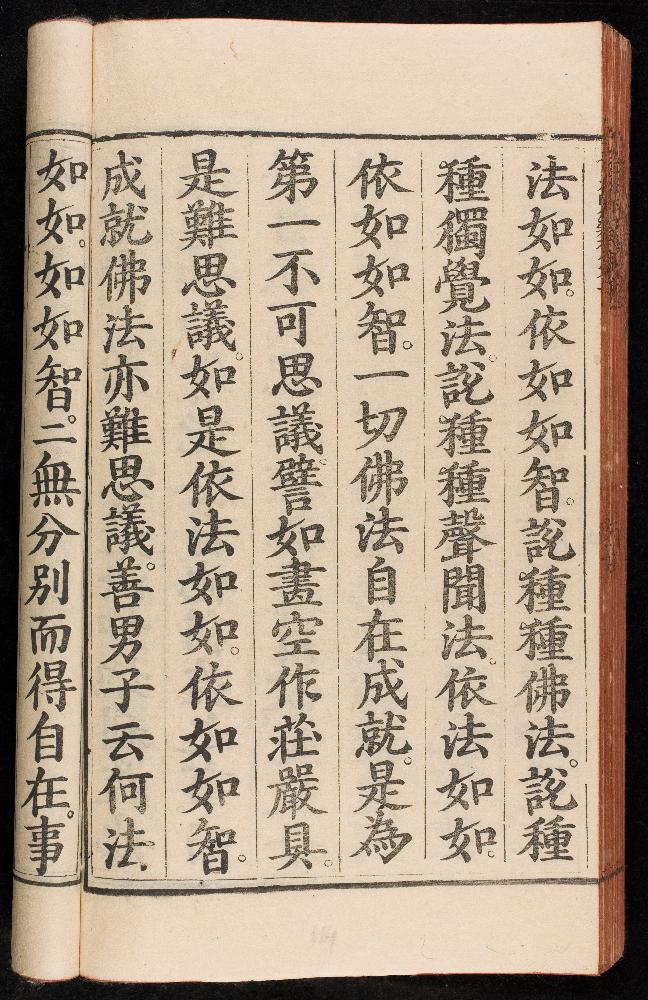 法如如。依如如智。說種種佛法。說種
種獨覺法。說種種聲聞法。依法如如。
依如如智。一切佛法自在成就。是為
第一不可思議。譬如畫空作莊嚴具。
是難思議。如是依法如如。依如如智。
成就佛法亦難思議。善男子云何法
如如。如如智。二無分別而得自在。事